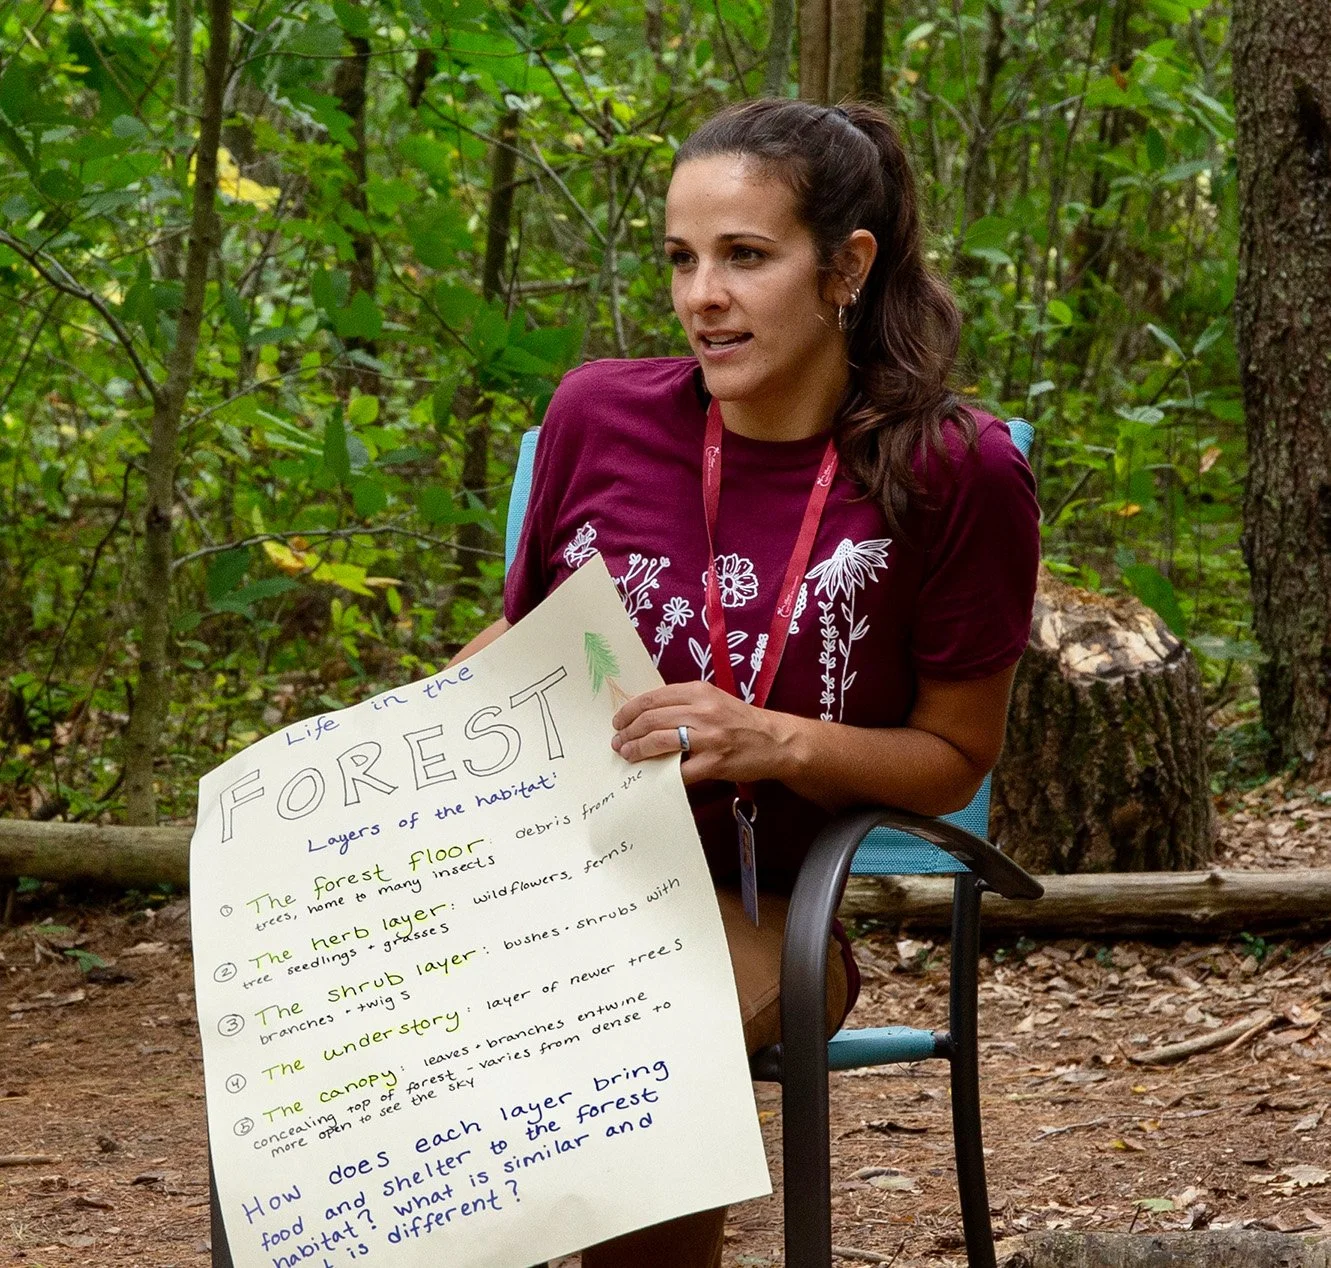 Life in the
FOREST
Layers of the habitat:
① The forest floor: debris from the
trees, home to many insects
② The herb layer: wildflowers, ferns,
tree seedlings + grasses
③ The shrub layer: bushes + shrubs with
branches + twigs
④ The understory: layer of newer trees
⑤ The canopy: leaves + branches entwine
concealing top of forest - varies from dense to
more open to see the sky
How does each layer bring
food and shelter to the forest
habitat? What is similar and
is different?